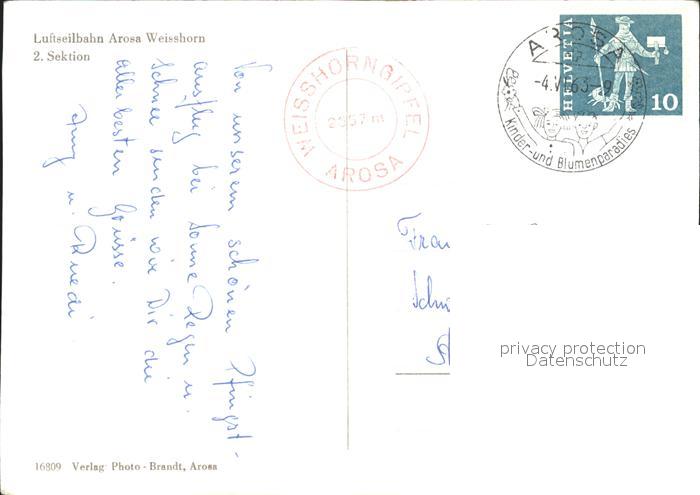 Luftseilbahn Arosa Weisshorn
2. Sektion
WEISSHORNGIPFEL
2657 m
AROSA
AROSA
-4.VI.63.-9
Kinder-und Blumenparadies
HELVETIA
10
Von unserem schönen Pfingst-
ausflug bei Sonne Regen u.
Schnee senden wir Dir die
allerbesten Grüsse.
u. Ruedi
Frau
privacy protection
Datenschutz
16809 Verlag Photo-Brandt, Arosa